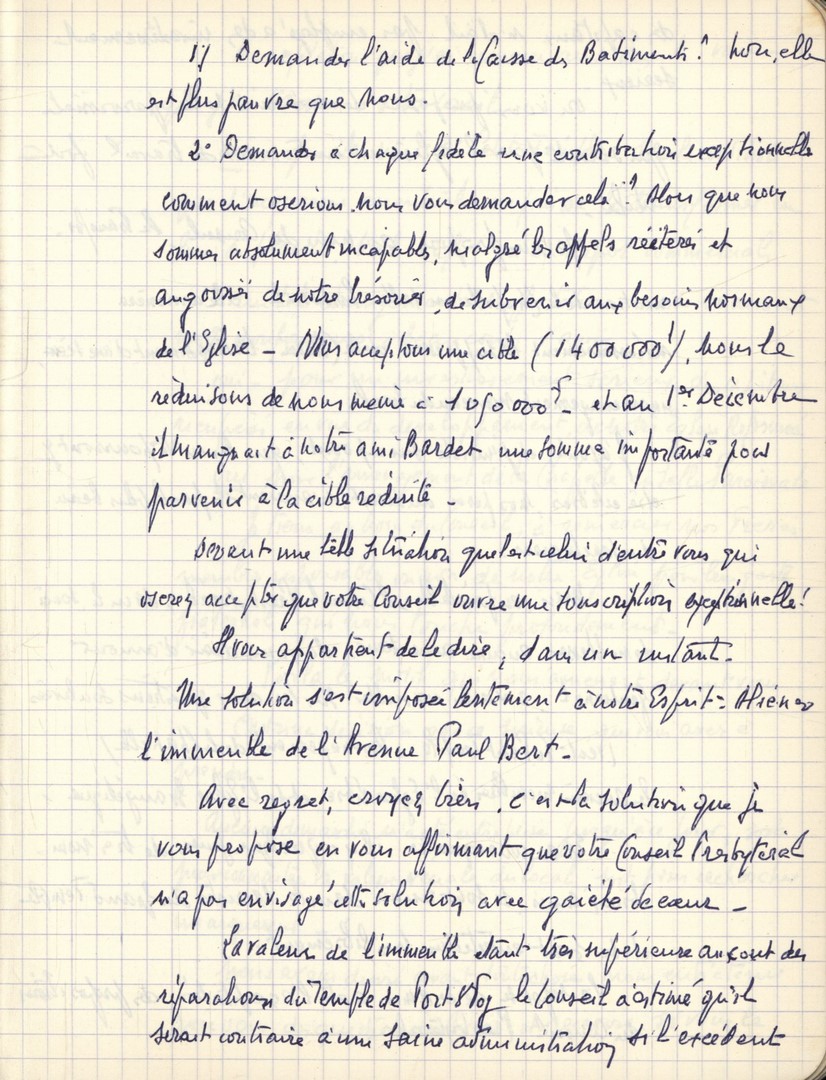 1°/ Demander l'aide de la Caisse des Batiments? non, elle
est plus pauvre que nous.
2° Demander à chaque fidèle une contribution exceptionnelle
comment oserions-nous vous demander cela? Alors que nous
sommes absolument incapables, malgré les appels réitérés et
angoissés de notre trésorier, de subvenir aux besoins normaux
de l'Eglise - Nous acceptons une cible (1400000f), nous le
réduisons de nous meme à 1050000f - et au 1er Décembre
il manquait à notre ami Bardet une somme importante pour
parvenir à la cible réduite -
Devant une telle situation quel est celui d'entre vous qui
oserez accepter que votre Conseil ouvre une souscription exceptionnelle!
Il vous appartient de le dire, dans un instant -
Une solution s'est imposée lentement à notre Esprit - Aliéner
l'immeuble de l'Avenue Paul Bert -
Avec regret, croyez bien, c'est la solution que je
vous propose en vous affirmant que votre Conseil Presbytéral
n'a pas envisagé cette solution avec gaiété de coeur -
La valeur de l'immeuble étant très supérieure au cout des
réparations du Temple de Port Royal le Conseil a estimé qu'il
serait contraire à une saine administration si l'excédent